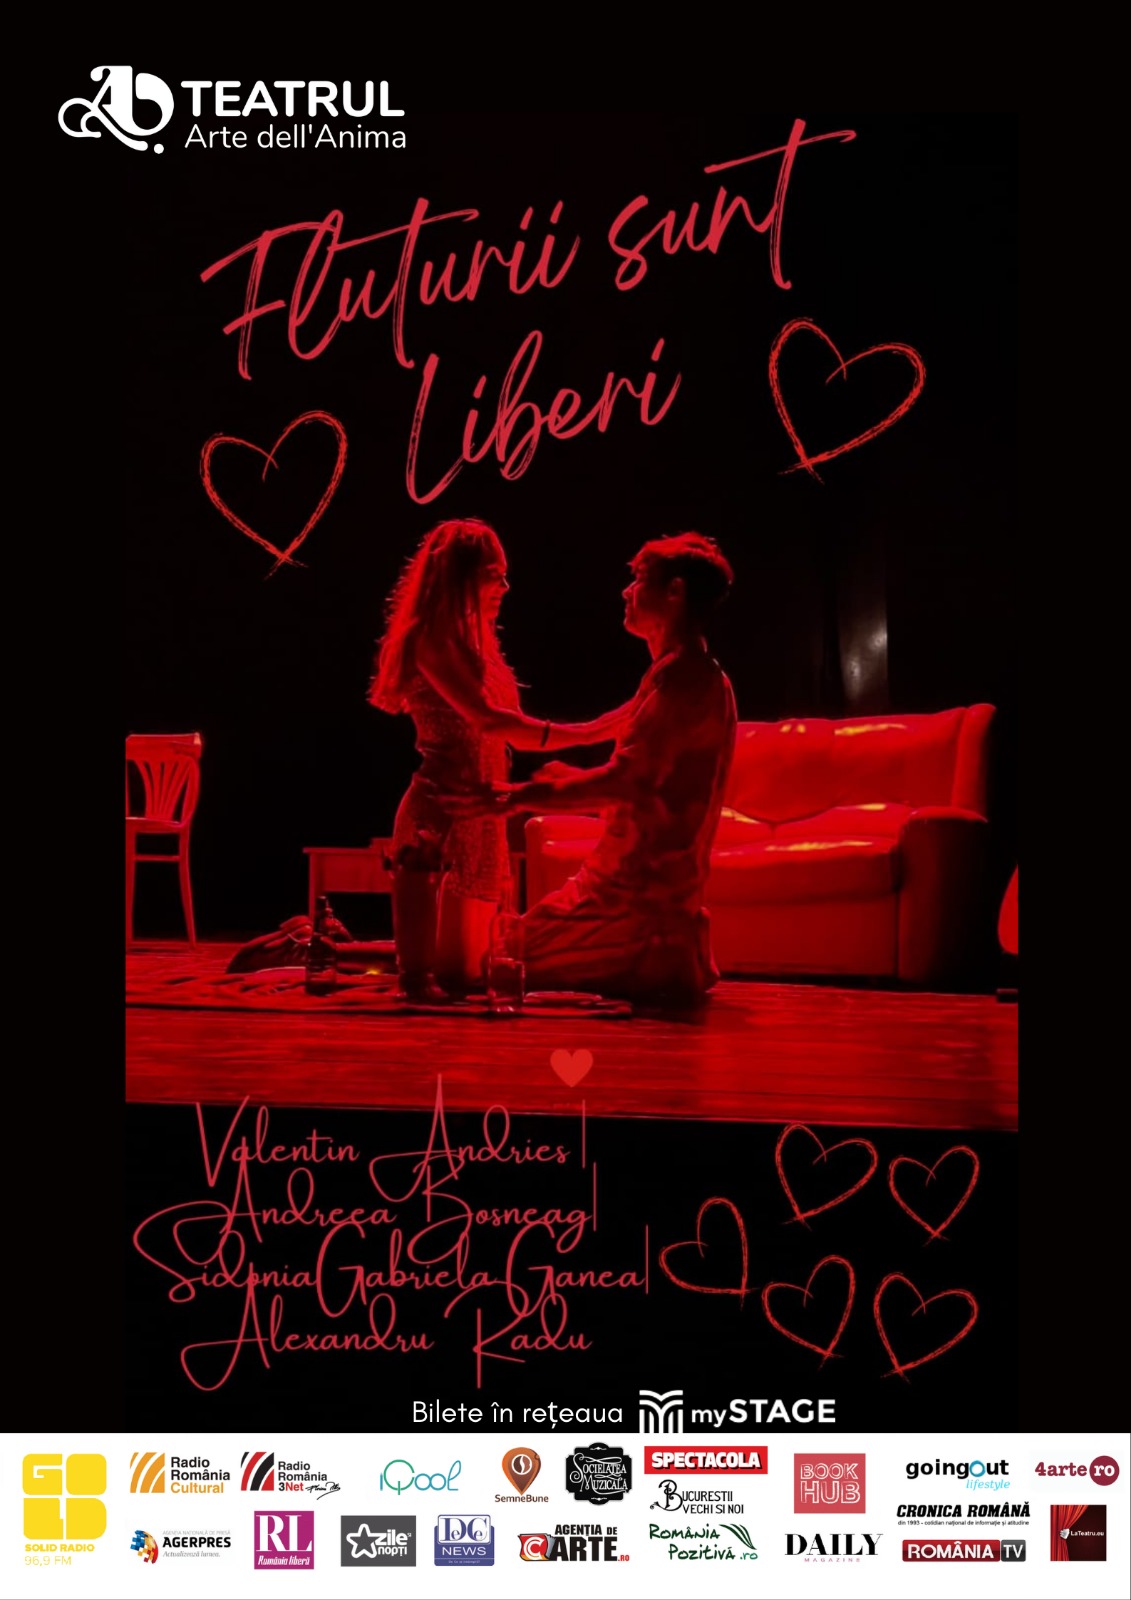 TEATRUL
Arte dell'Anima
Fluturii sunt
liberi
Valentin Andries |
Andreea Bosneag|
Sidonia Gabriela Ganea|
Alexandru Radu
Bilete în rețeaua mySTAGE
GOLD
SOLID RADIO
96,9 FM
Radio
România
Cultural
Radio
România
3Net
iQool
SemneBune
SOCIETATEA
MUZICALĂ
SPECTACOLA
BUCURESTII
VECHI SI NOI
BOOK
HUB
goingout
lifestyle
4arte ro
AGENȚIA NAȚIONALĂ DE PRESĂ
AGERPRES
Actualizează lumea.
RL
România liberă
zile
și
nopți
DC
NEWS
AGENȚIA DE
CARTE.RO
ROMÂNIA
POZITIVĂ.ro
DAILY
MAGAZINE
CRONICA ROMÂNĂ
din 1993 - cotidian național de informație și atitudine
ROMÂNIA TV
LaTeatru.eu